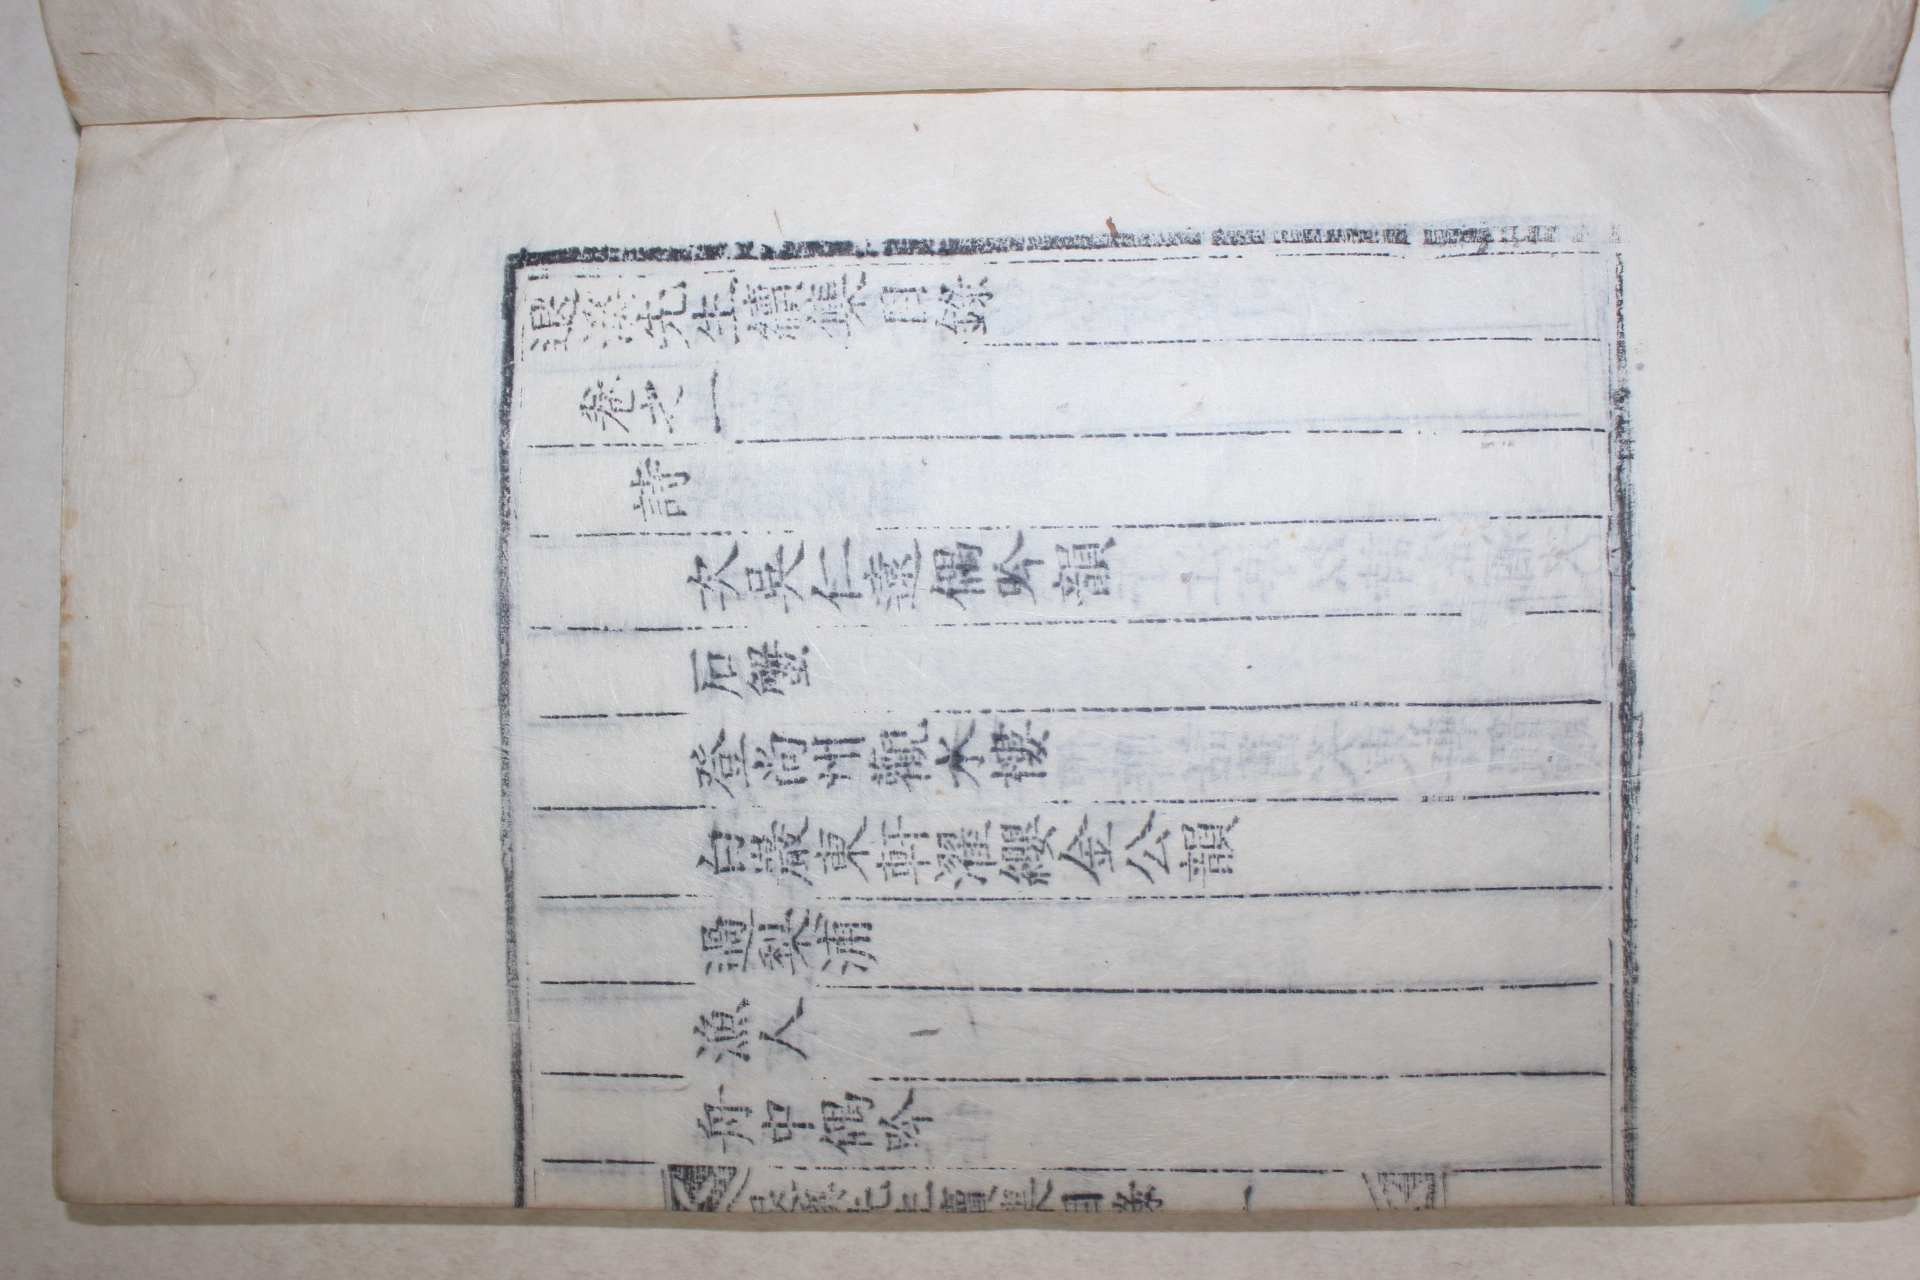 退溪先生續集目錄
卷之一
詩
次吳仁遠偶吟韻
石蟹
登尙州觀水樓
白巖東軒濯纓金公韻
過吳浦
漁人
舟中偶吟
退溪先生續集目錄 一